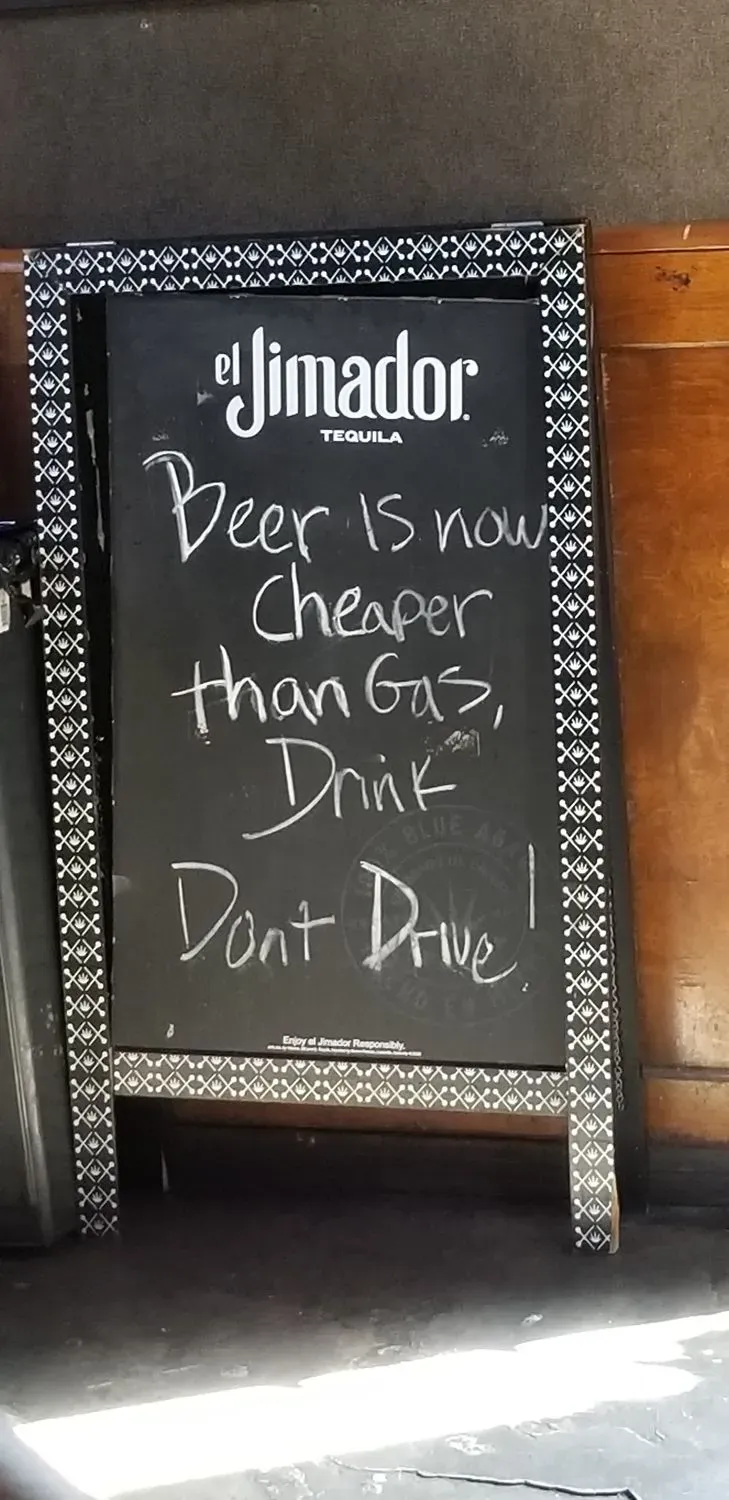 el Jimador.
TEQUILA
Beer is now
Cheaper
than Gas,
Drink
Dont Drive!
Enjoy el Jimador Responsibly.